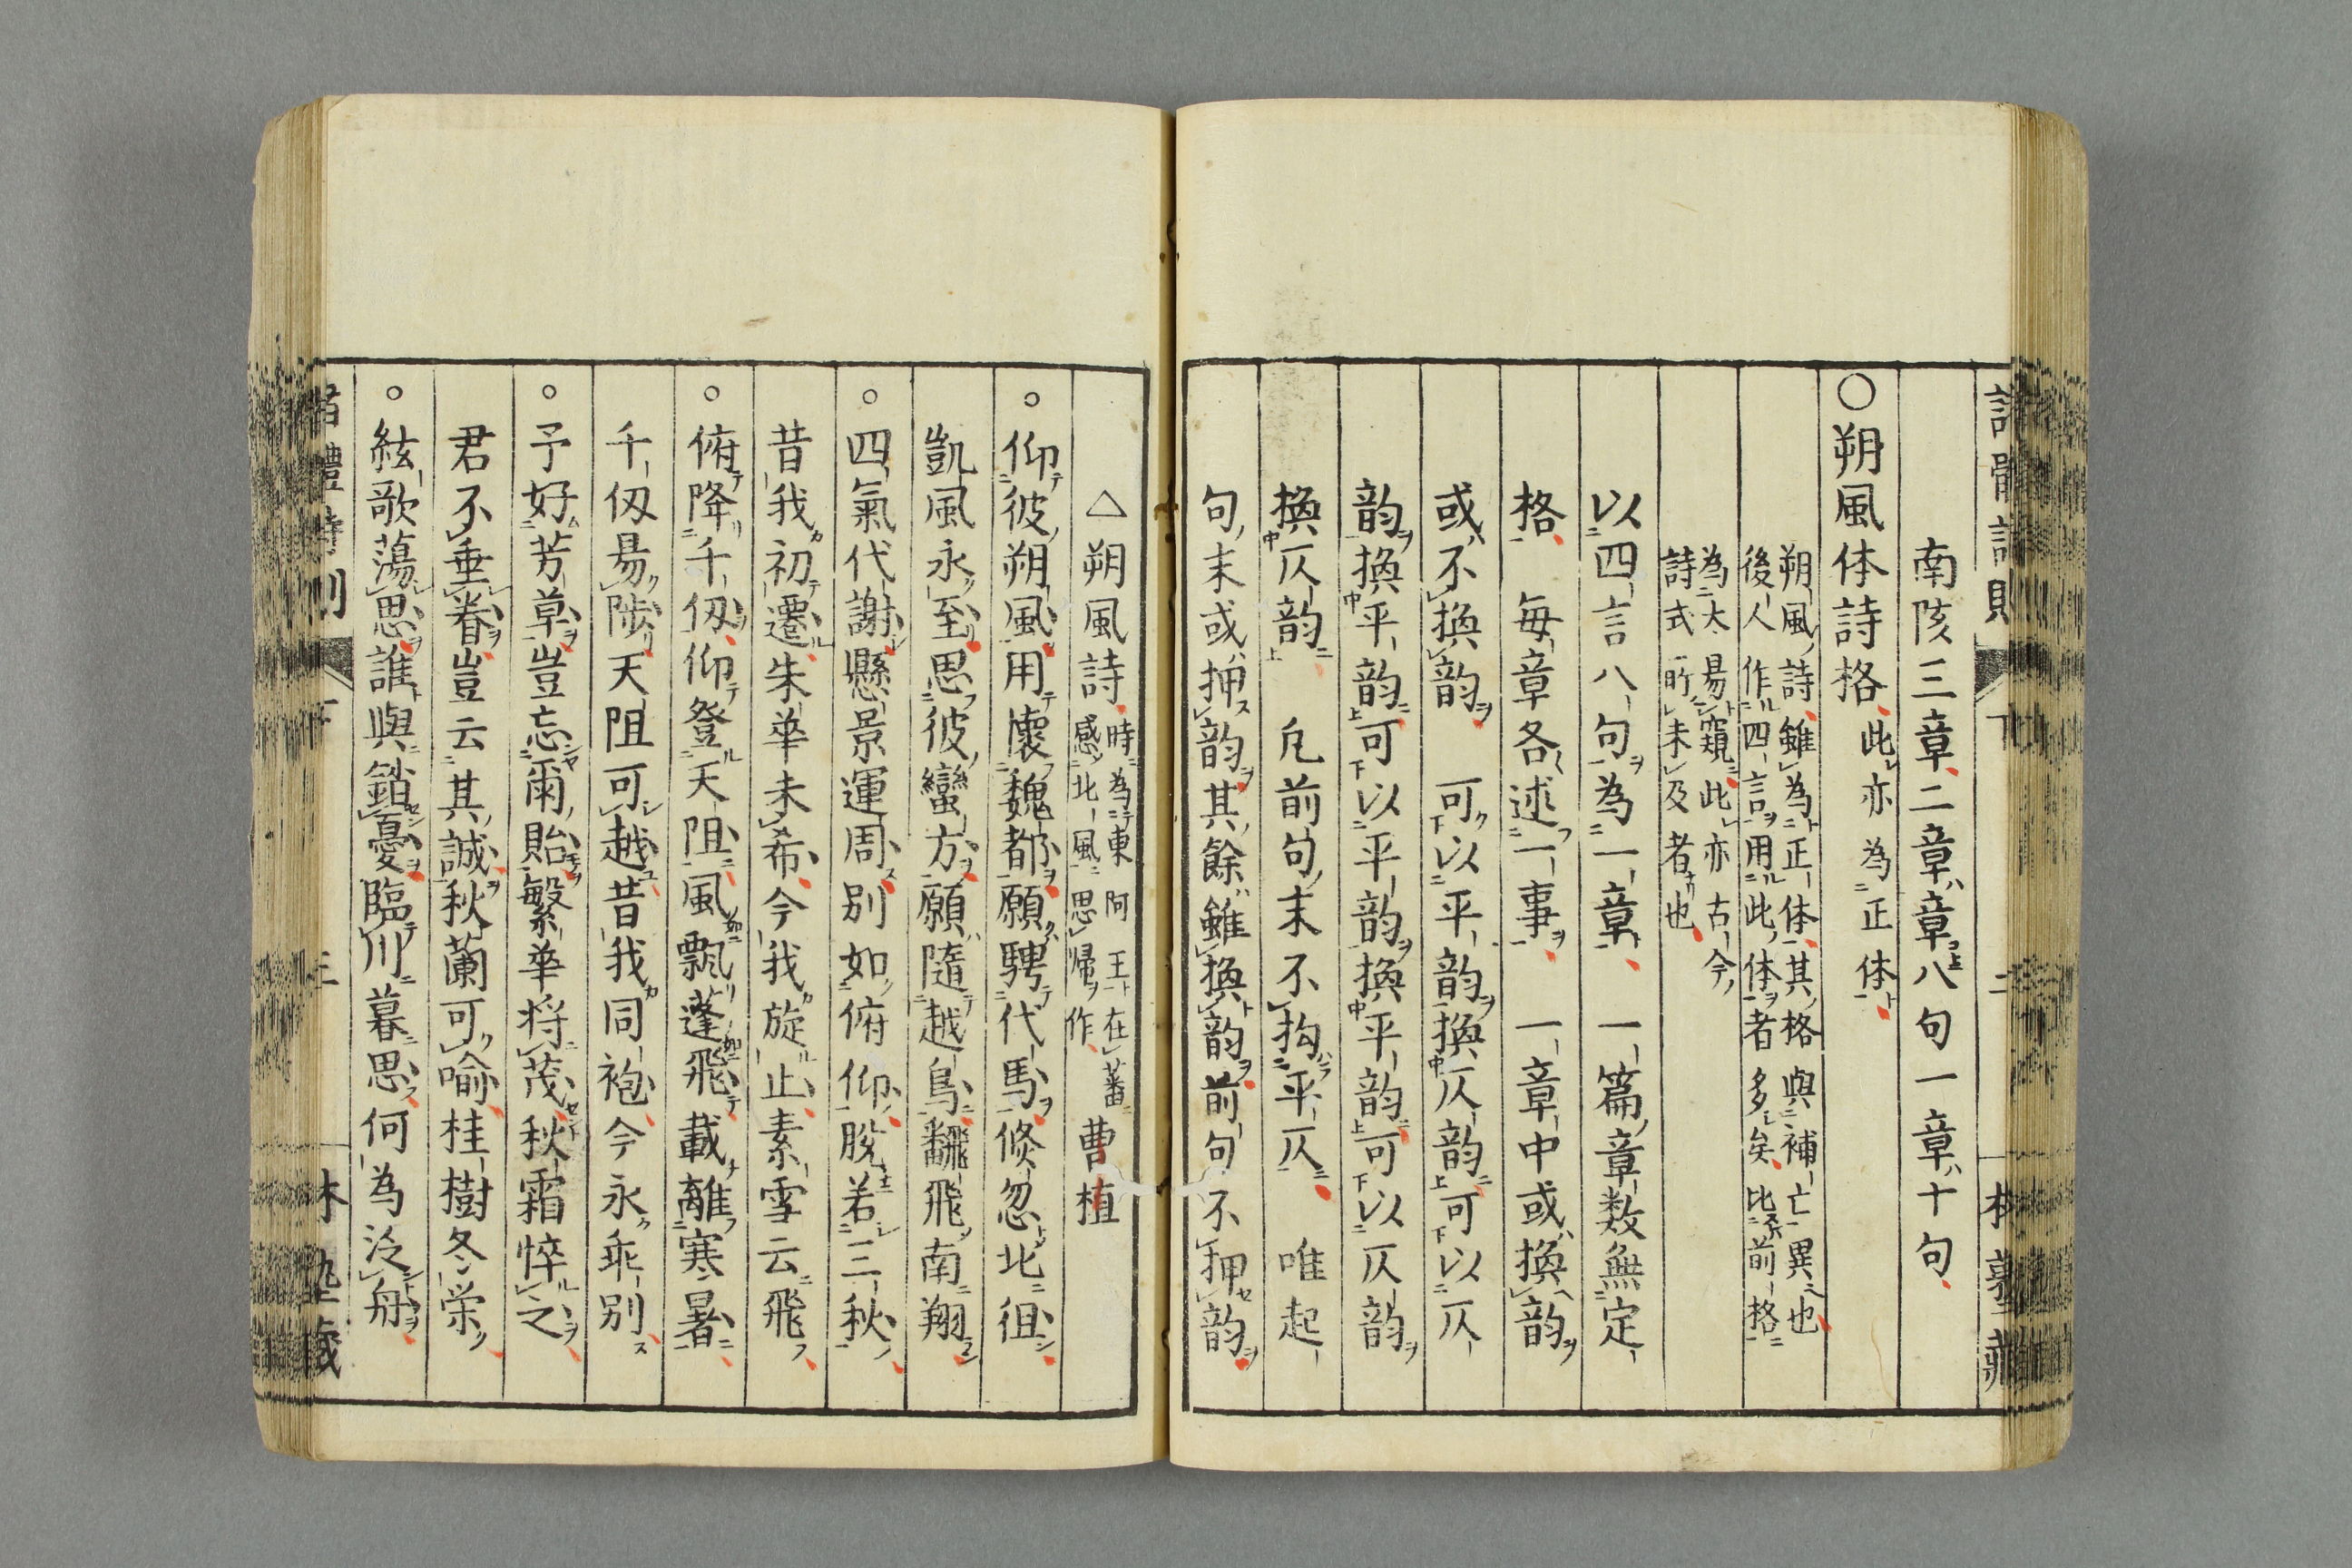 南陔三章二章章八句一章十句
〇朔風体詩格此亦為正体
朔風詩雖為正体其格與補亡異也
後人作四言用此体者多矣比前格
為太易窺此亦古今
詩式所未及者也
以四言八句為一章一篇章数無定
格毎章各述一事一章中或換韵
或不換韵可以平韵換仄韵可以仄
韵換平韵可以平韵換平韵可以仄韵
換仄韵凡前句末不拘平仄唯起
句末或押韵其餘雖換韵前句不押韵
△朔風詩時為東阿王在蕃感北風思帰作曹植
○仰彼朔風用懷魏都願騁代馬倐忽北徂
凱風永至思彼蠻方願隨越鳥飜飛南翔
○四氣代謝懸景運周別如俯仰脫若三秋
昔我初遷朱華未希今我旋止素雪云飛
○俯降千仭仰登天阻風飄蓬飛載離寒暑
千仭易陟天阻可越昔我同袍今永乖別
○予好芳草豈忘爾貽繁華将茂秋霜悴之
君不垂眷豈云其誠秋蘭可喻桂樹冬栄
○絃歌蕩思誰與銷憂臨川暮思何為泛舟